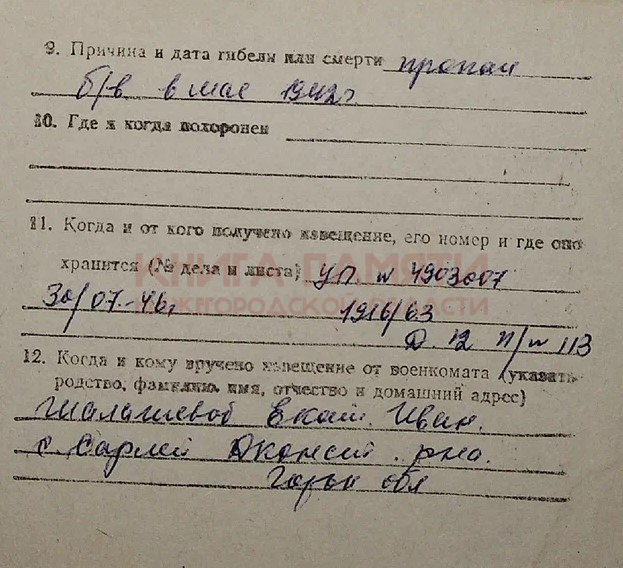 9. Причина и дата гибели или смерти пропал
б/в в мае 1942г
10. Где и когда похоронен
11. Когда и от кого получено извещение, его номер и где оно
КНИГА ПАМЯТИ
хранится (№ дела и листа) УП № 4903007
НИЖЕГОРОДСКОЙ ОБЛАСТИ
30/07-46г 1916/63
Д 12 п/№ 113
12. Когда и кому вручено извещение от военкомата (указать
родство, фамилию, имя, отчество и домашний адрес)
Шалашевой Екат. Иван.
с. Сарлей рна.
Горьк обл